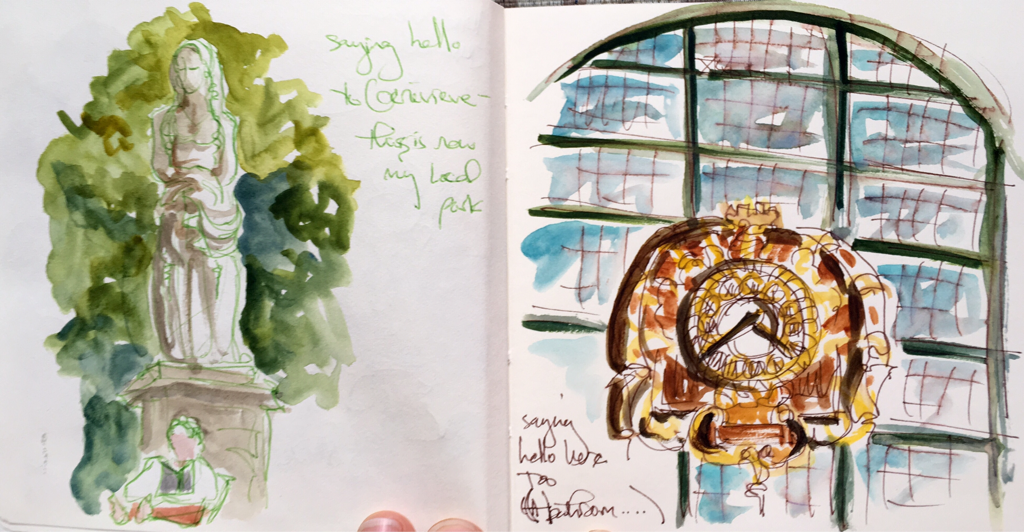 saying hello
to Genevieve -
this is now
my local
park
saying
hello here
too